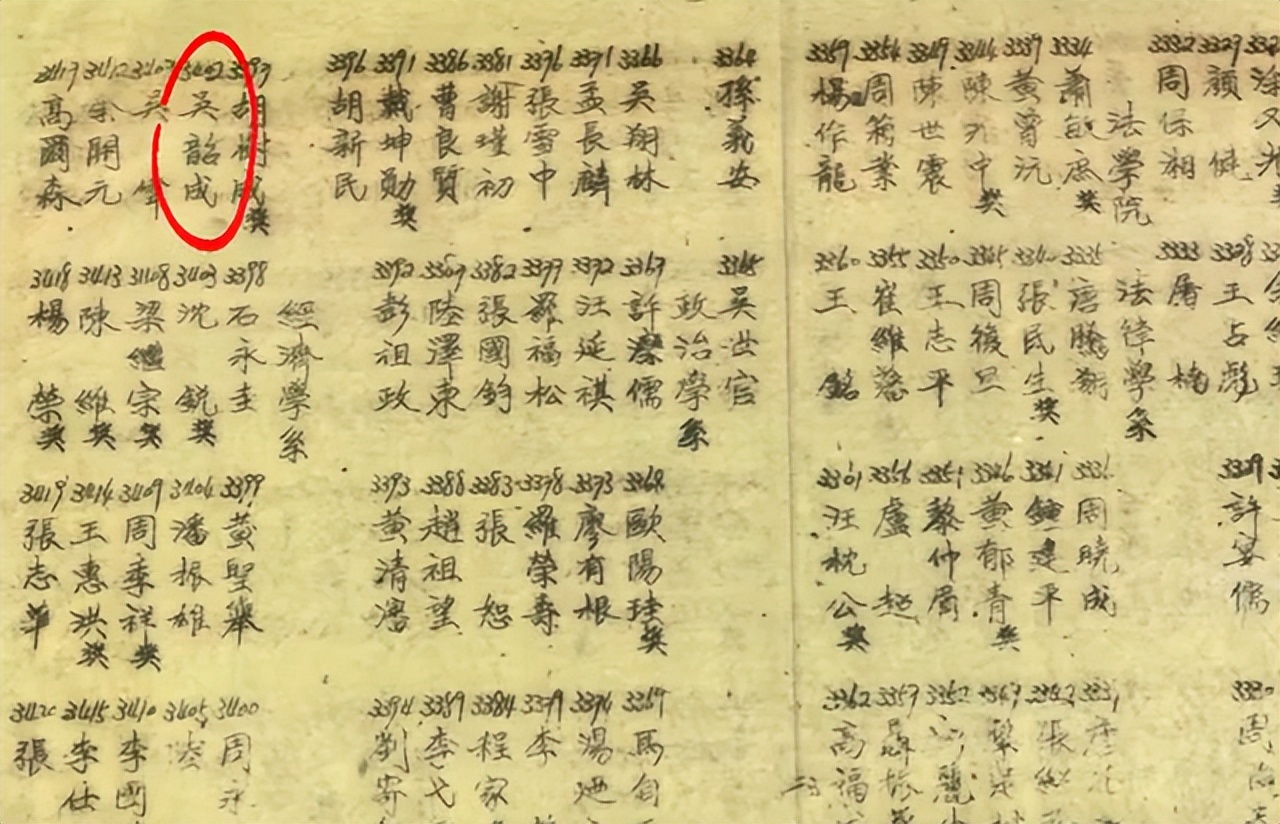 涂又光
3327 顏健
3328 王占彪
3329 許安儒
3330 周
3332 周保湘
3333 屠
法學院
法律學系
3334 蕭敏庶 奬
3335 唐騰翔
3336 周曉成
3339 黃曾沅
3340 張民生 奬
3341 鍾建平
3342 張
3344 陳九中 奬
3345 周復旦
3346 黄郁青 奬
3347
3349 陳世震
3350 王志平
3351 黎仲眉
3352
3354 周葯業
3355 崔維
3356 盧超
3357 聶振
3359 楊作龍
3360 王銘
3361 汪枕公 奬
3362 高福
3364 孫義安
3365 吳世官
政治學系
3366 吳翔林
3367 許儒
3368 歐陽珪 奬
3369 馬
3371 孟長麟
3372 汪延祺
3373 廖有根
3374 湯迺
3376 張雪中
3377 羅福松
3378 羅榮壽
3379 李
3381 謝瑾初
3382 張國鈞
3383 張恕
3384 程家
3386 曹良質
3387 陸澤東
3388 趙祖望
3389 李弋
3391 戴坤勋 奬
3392 彭祖政
3393 黄清濤
3394 劉寄
3396 胡新民
經濟學系
3397 胡樹成 奬
3398 石永圭
3399 黄聖舉
3400 周永
3402 吳韶成
3403 沈銳 奬
3404 潘振雄
3405 陸
3407 吳
3408 梁繼宗 奬
3409 周季祥 奬
3410 李國
3412 余開元
3413 陳維 奬
3414 王惠洪 奬
3415 李仕
3417 高爾森
3418 楊榮 奬
3419 張志華
3420 張